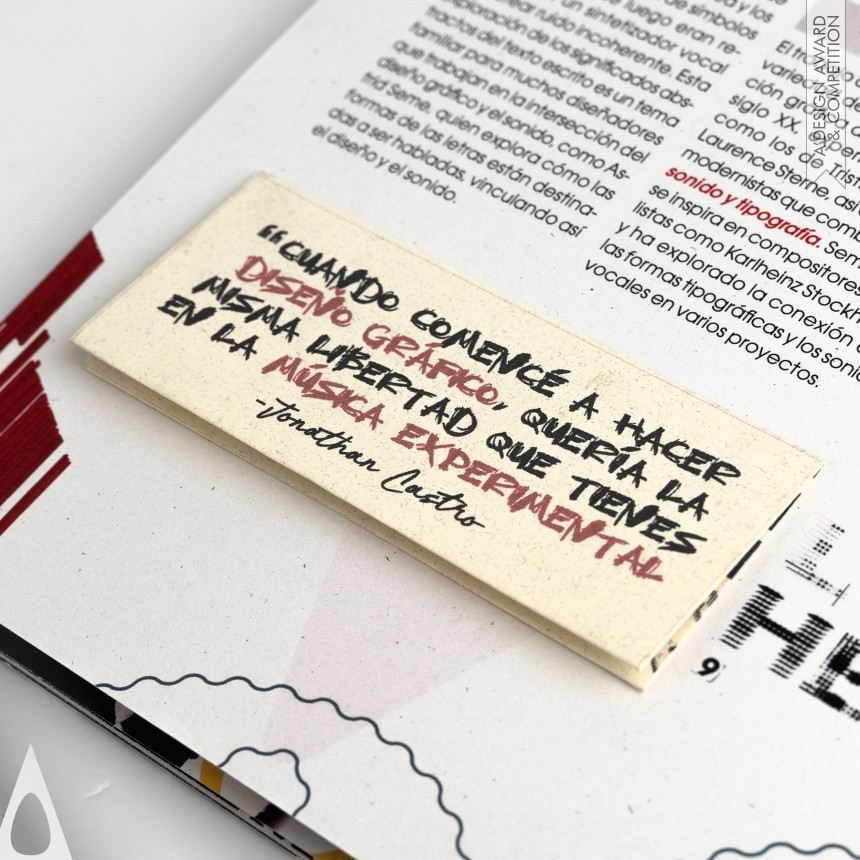 de símbolos
luego eran re-
un sintetizador vocal
crear ruido incoherente. Esta
exploración de los significados abs-
tractos del texto escrito es un tema
familiar para muchos diseñadores
que trabajan en la intersección del
diseño gráfico y el sonido, como As-
trid Seme, quien explora cómo las
formas de las letras están destina-
das a ser habladas, vinculando así
el diseño y el sonido.
El
ción
siglo XX,
como los de Trist
Laurence Sterne, así
modernistas que comb
sonido y tipografía. Sem
se inspira en compositores
listas como Karlheinz Stockh
y ha explorado la conexión
las formas tipográficas y los soni
vocales en varios proyectos.
“CUANDO COMENCÉ A HACER
DISEÑO GRÁFICO, QUERÍA LA
MISMA LIBERTAD QUE TIENES
EN LA MÚSICA EXPERIMENTAL
-Jonathan Castro
L
HE
9
A' DESIGN AWARD
& COMPETITION